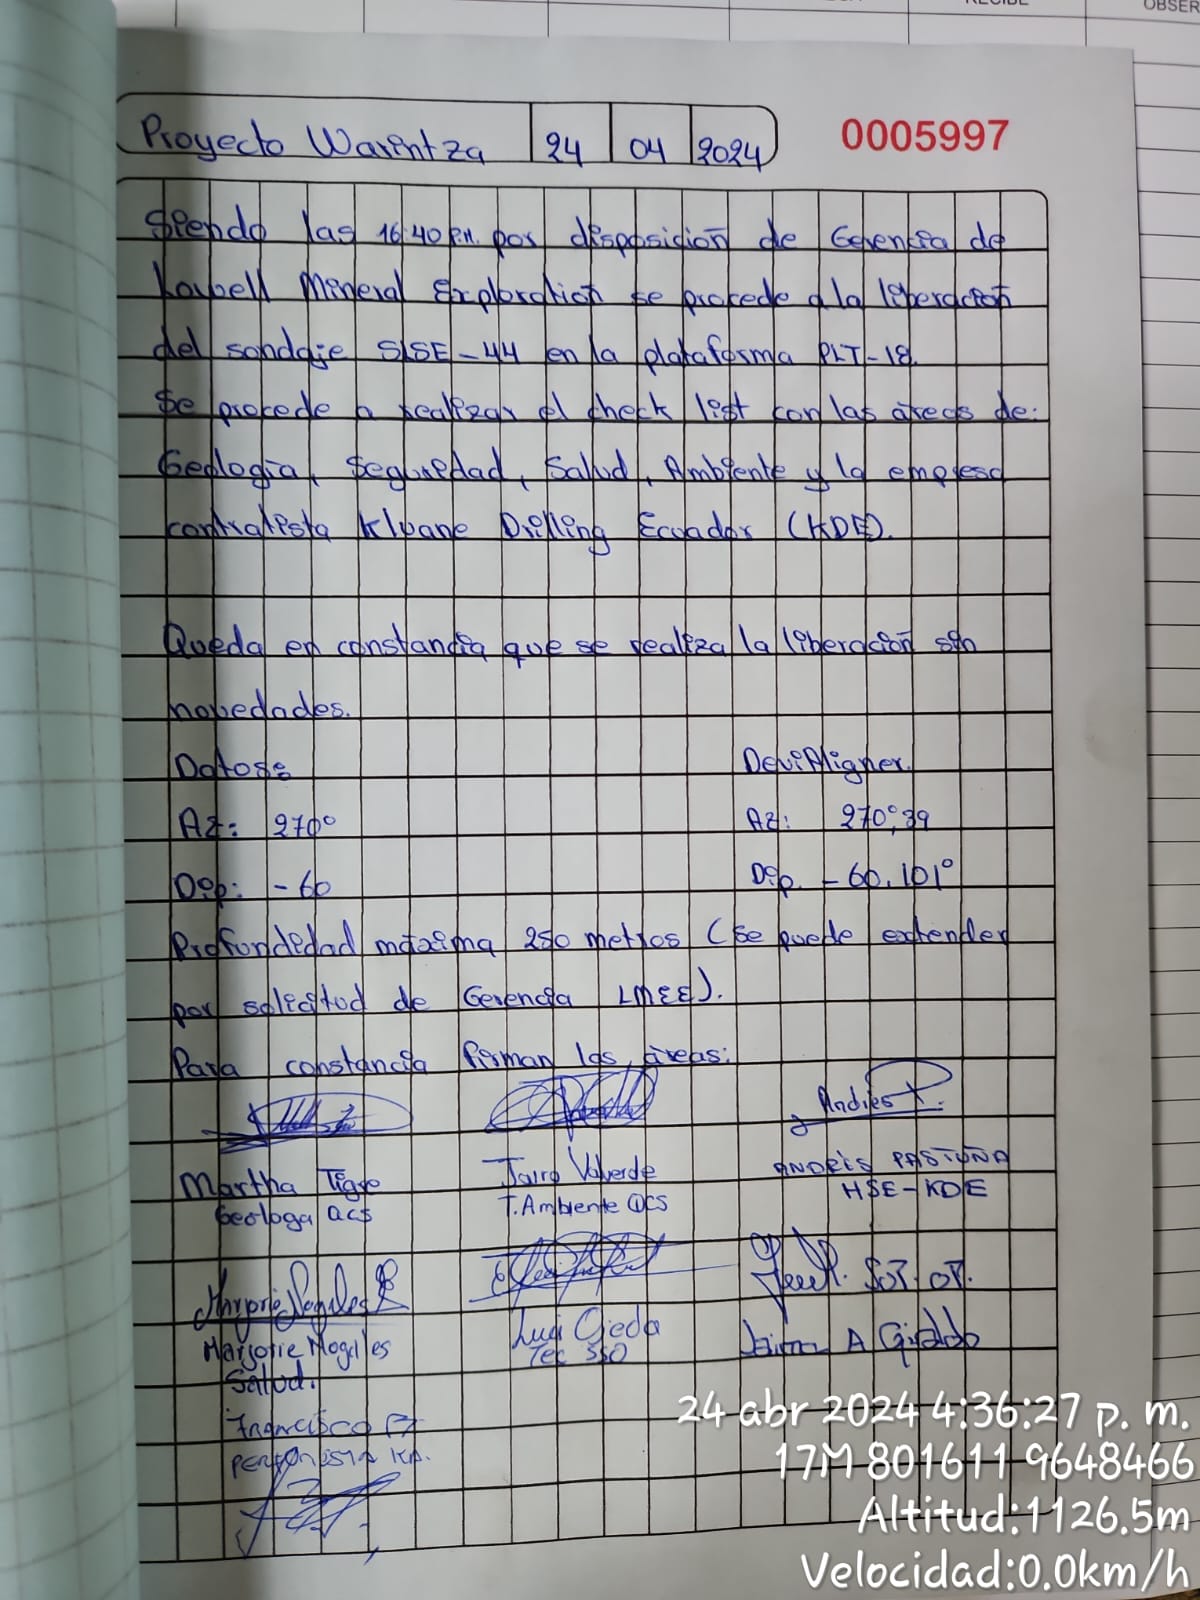 RECIBE
OBSER
Proyecto Warintza 24 04 2024
0005997
Siendo las 16:40 P.M. por disposición de Gerencia de
Lowell Mineral Exploration se procede a la liberación
del sondaje SISE-44 en la plataforma PLT-18.
Se procede a realizar el check list con las áreas de:
Geología, Seguridad, Salud, Ambiente y la empresa
contratista Kluane Drilling Ecuador (KDE).
Queda en constancia que se realiza la liberación sin
novedades.
Datos: DeviAligner.
Az: 270° Az: 270°,39
Dip: -60 Dip. -60.101°
Profundidad máxima 250 metros (se puede extender
por solicitud de Gerencia LMEE).
Para constancia firman las áreas:
Andrés P.
Martha Tigre Jairo Valverde ANDRÉS PASTUÑA
Geóloga QCS T. Ambiente QCS HSE-KDE
SOT. OT.
Marjorie Mogilles Luci Ojeda Jaime A Giraldo
Salud. Tec SSO
Francisco
24 abr 2024 4:36:27 p. m.
17M 801611 9648466
Altitud:1126.5m
Velocidad:0.0km/h